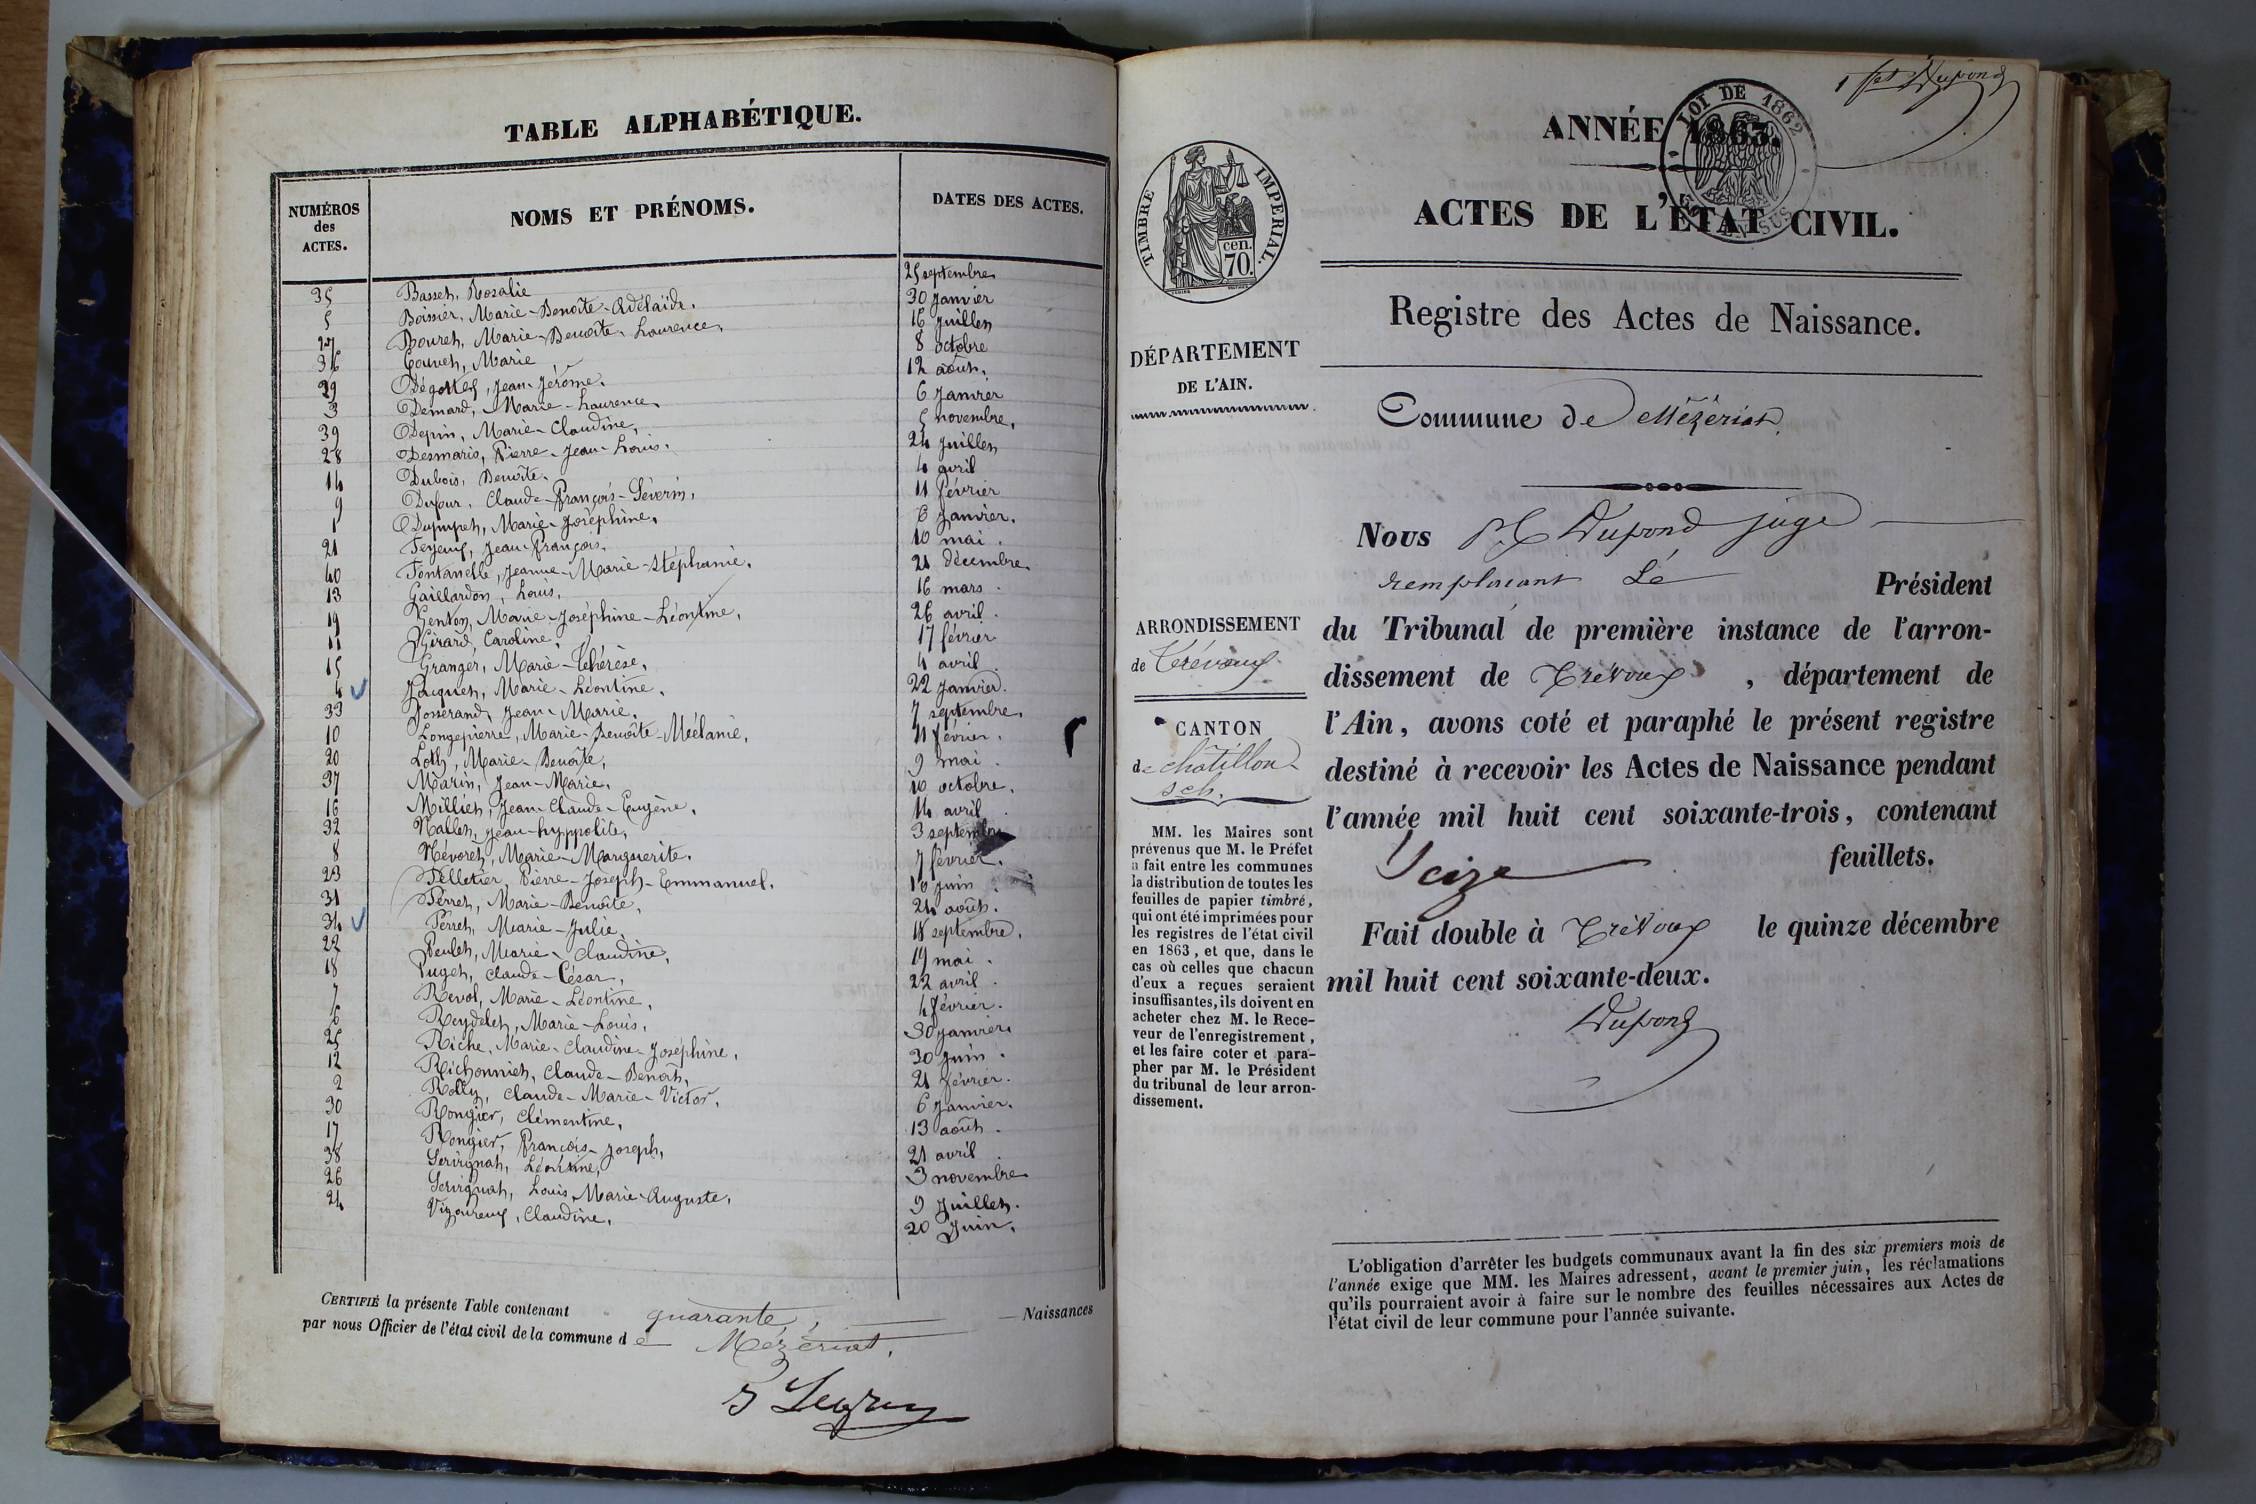 TABLE ALPHABÉTIQUE.
NUMÉROS des ACTES.
NOMS ET PRÉNOMS.
DATES DES ACTES.
35 Basset, Rosalie 25 septembre
5 Boissier, Marie-Benoîte-Adélaïde. 30 Janvier
27 Bouret, Marie-Benoîte-Laurence, 16 Juillet
36 Couvet, Marie 8 octobre
29 Dégottex, Jean-Jérome. 12 août.
3 Demard, Marie-Laurence, 6 Janvier
39 Depin, Marie-Claudine, 5 novembre,
28 Desmaris, Pierre-Jean-Louis. 24 Juillet
14 Dubois, Benoîte. 4 avril
9 Dufour, Claude-François-Séverin, 11 février
1 Dupupet, Marie-Joséphine, 6 Janvier.
21 Feyeux, Jean-François. 10 mai.
40 Fontanelle, Jeanne-Marie-Stéphanie. 21 décembre
13 Gaillardon, Louis, 16 mars.
19 Genton, Marie-Joséphine-Léontine, 26 avril.
11 Girard, Caroline, 17 février
15 Granger, Marie-Thérèse, 4 avril.
4 Jacquet, Marie-Léontine, 22 Janvier.
33 Josserand, Jean-Marie. 7 septembre,
10 Longepierre, Marie-Benoîte-Mélanie, 11 février.
20 Loth, Marie-Benoîte, 9 mai.
37 Marin, Jean-Marie, 10 octobre.
16 Milliet, Jean-Claude-Eugène, 14 avril
32 Nallet, Jean-hyppolite, 3 septembre
8 Névoret, Marie-Marguerite. 7 février.
23 Pelletier, Pierre-Joseph-Emmanuel, 10 juin
31 Perret, Marie-Benoîte, 24 août.
34 Perret, Marie-Julie, 18 septembre,
22 Peulet, Marie-Claudine, 19 mai.
18 Puget, Claude-César, 22 avril.
7 Revol, Marie-Léontine, 4 février.
6 Reydelet, Marie-Louis, 30 janvier.
25 Riche, Marie-Claudine-Joséphine, 30 Juin.
12 Richonnier, Claude-Benoît, 21 février.
2 Rolly, Claude-Marie-Victor, 6 Janvier.
30 Rongier, Clémentine, 13 août.
17 Rongier, François-Joseph, 21 avril
38 Servignat, Léontine, 3 novembre
26 Servignat, Louis-Marie-Auguste, 9 Juillet.
24 Vigoureux, Claudine, 20 Juin.
CERTIFIÉ la présente Table contenant quarante, Naissances
par nous Officier de l'état civil de la commune de Mézériat,
1 Dupond
LOI DE 1862
ANNÉE 1863.
ACTES DE L'ÉTAT CIVIL.
TIMBRE IMPÉRIAL.
cen. 70.
Registre des Actes de Naissance.
DÉPARTEMENT
DE L'AIN.
Commune de Mézériat.
Nous Dupond juge
remplacant Le Président
ARRONDISSEMENT
de Trévoux
du Tribunal de première instance de l'arron-
dissement de Trévoux, département de
l'Ain, avons coté et paraphé le présent registre
destiné à recevoir les Actes de Naissance pendant
l'année mil huit cent soixante-trois, contenant
Seize feuillets.
CANTON
de Châtillon
s. ch.
MM. les Maires sont
prévenus que M. le Préfet
a fait entre les communes
la distribution de toutes les
feuilles de papier timbré,
qui ont été imprimées pour
les registres de l'état civil
en 1863, et que, dans le
cas où celles que chacun
d'eux a reçues seraient
insuffisantes, ils doivent en
acheter chez M. le Rece-
veur de l'enregistrement,
et les faire coter et para-
pher par M. le Président
du tribunal de leur arron-
dissement.
Fait double à Trévoux le quinze décembre
mil huit cent soixante-deux.
Dupond
L'obligation d'arrêter les budgets communaux avant la fin des six premiers mois de
l'année exige que MM. les Maires adressent, avant le premier juin, les réclamations
qu'ils pourraient avoir à faire sur le nombre des feuilles nécessaires aux Actes de
l'état civil de leur commune pour l'année suivante.